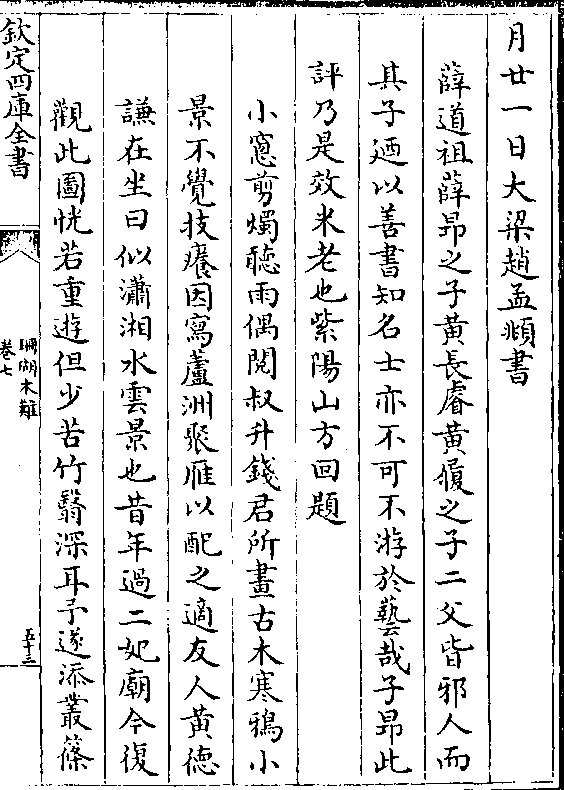 月廿一日大梁趙孟頫書
薛道祖薛昂之子黃長睿黃履之子二父皆邪人而
其子廼以善書知名士亦不可不游於藝哉子昂此
評乃是效米老也紫陽山方回題
小窻剪燭聽雨偶閱叔升錢君所畫古木寒鴉小
景不覺技癢因寫蘆洲聚雁以配之適友人黃徳
謙在坐曰似瀟湘水雲景也昔年過二妃廟今復
觀此圖恍若重遊但少苦竹翳深耳予遂添叢篠
欽定四庫全書
珊瑚木難
卷七
五十三